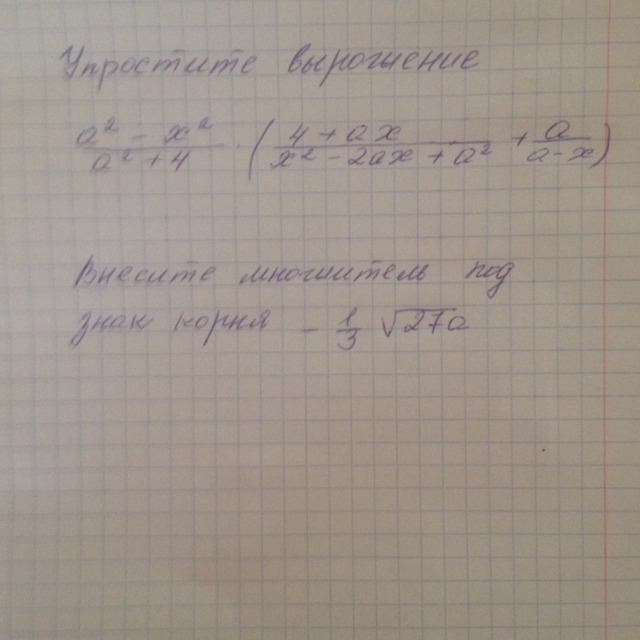 Упростите вырожшение
(a² - x²)/(a² + 4) · ((4 + ax)/(x² - 2ax + a²) + a/(a - x))
Внесите множитель под
знак корня - 1/3 √27a